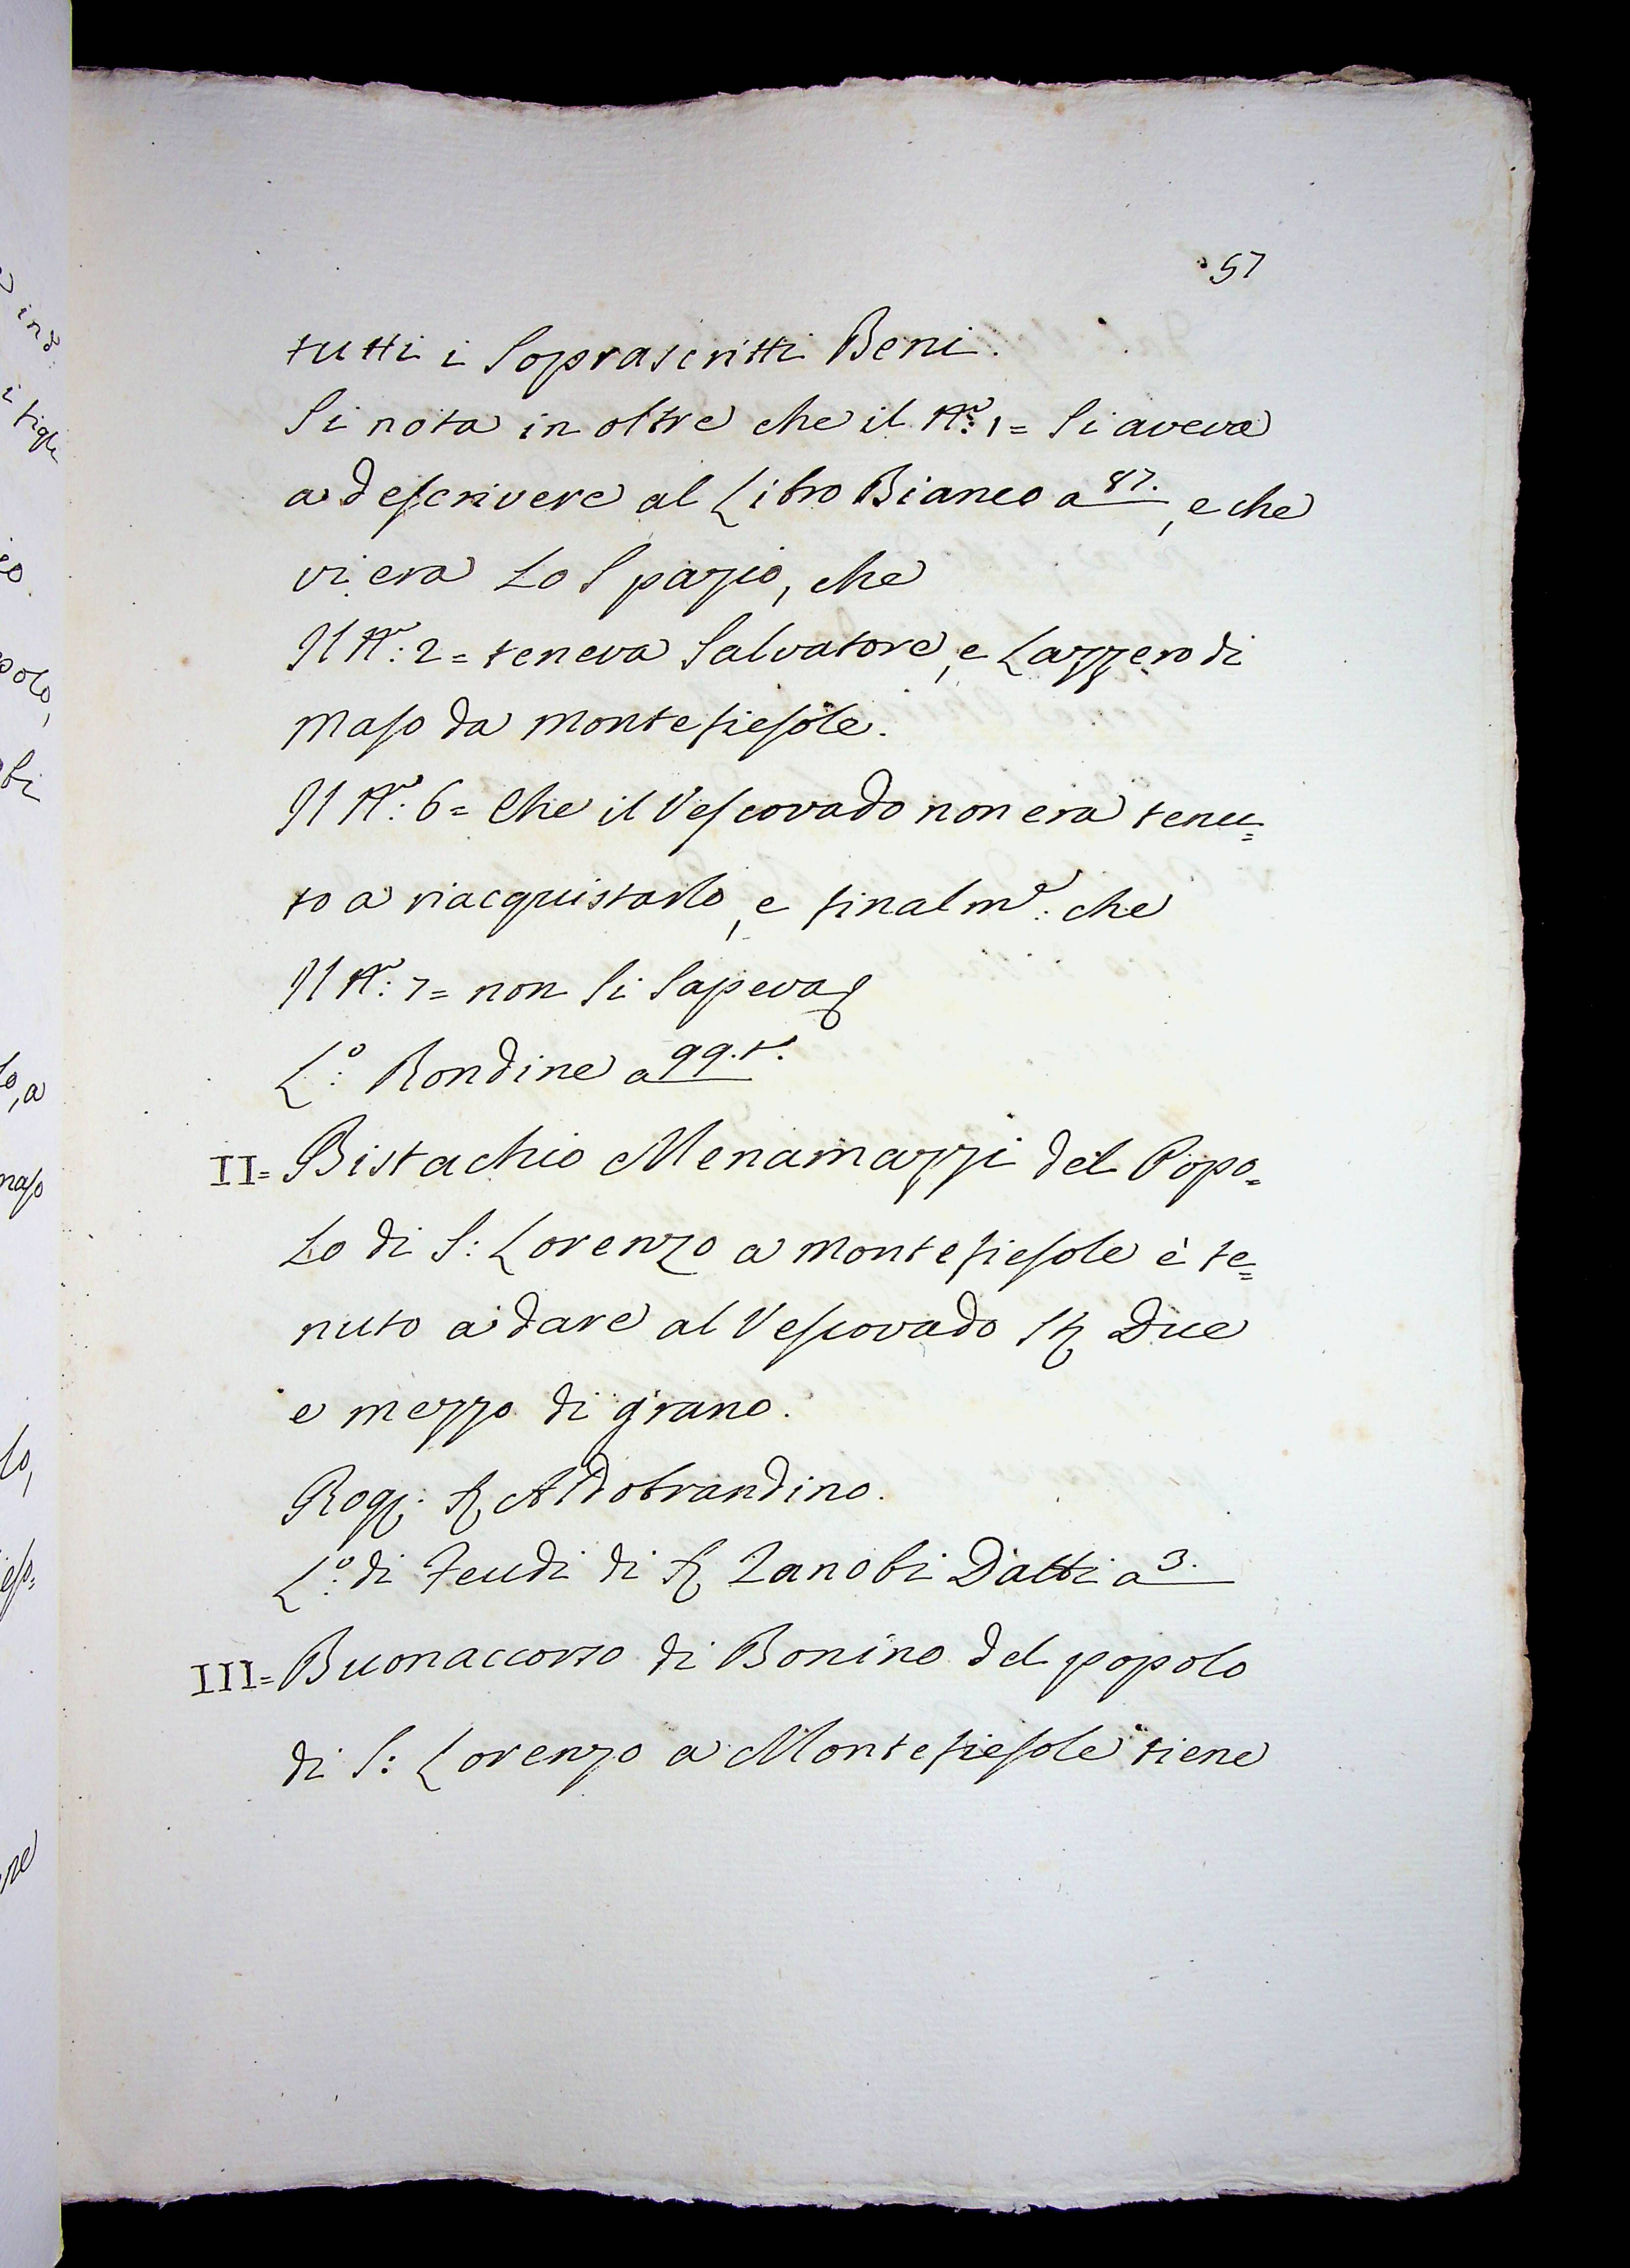 57
tutti i Soprascritti Beni.
Si nota in oltre che il N.º 1 = Si aveva
a descrivere al Libro Bianco a 87., e che
vi era Lo Spazio, che
Il N.º 2 = teneva Salvatore, e Lazzero di
Maso da Montefiesole.
Il N.º 6 = Che il Vescovado non era tenu=
to a riacquistarlo, e finalm.e che
Il N.º 7 = non Si Sapeva
L.º Rondine a 99.t.
II = Bistachio Menamazzi del Popo=
Lo di S: Lorenzo a Montefiesole è te=
nuto a dare al Vescovado St Due
e mezzo di grano.
Rog. S Aldobrandino.
L.º di Feudi di S Zanobi Datti a 3.
III = Buonaccorso di Bonino del popolo
di S: Lorenzo a Montefiesole tiene